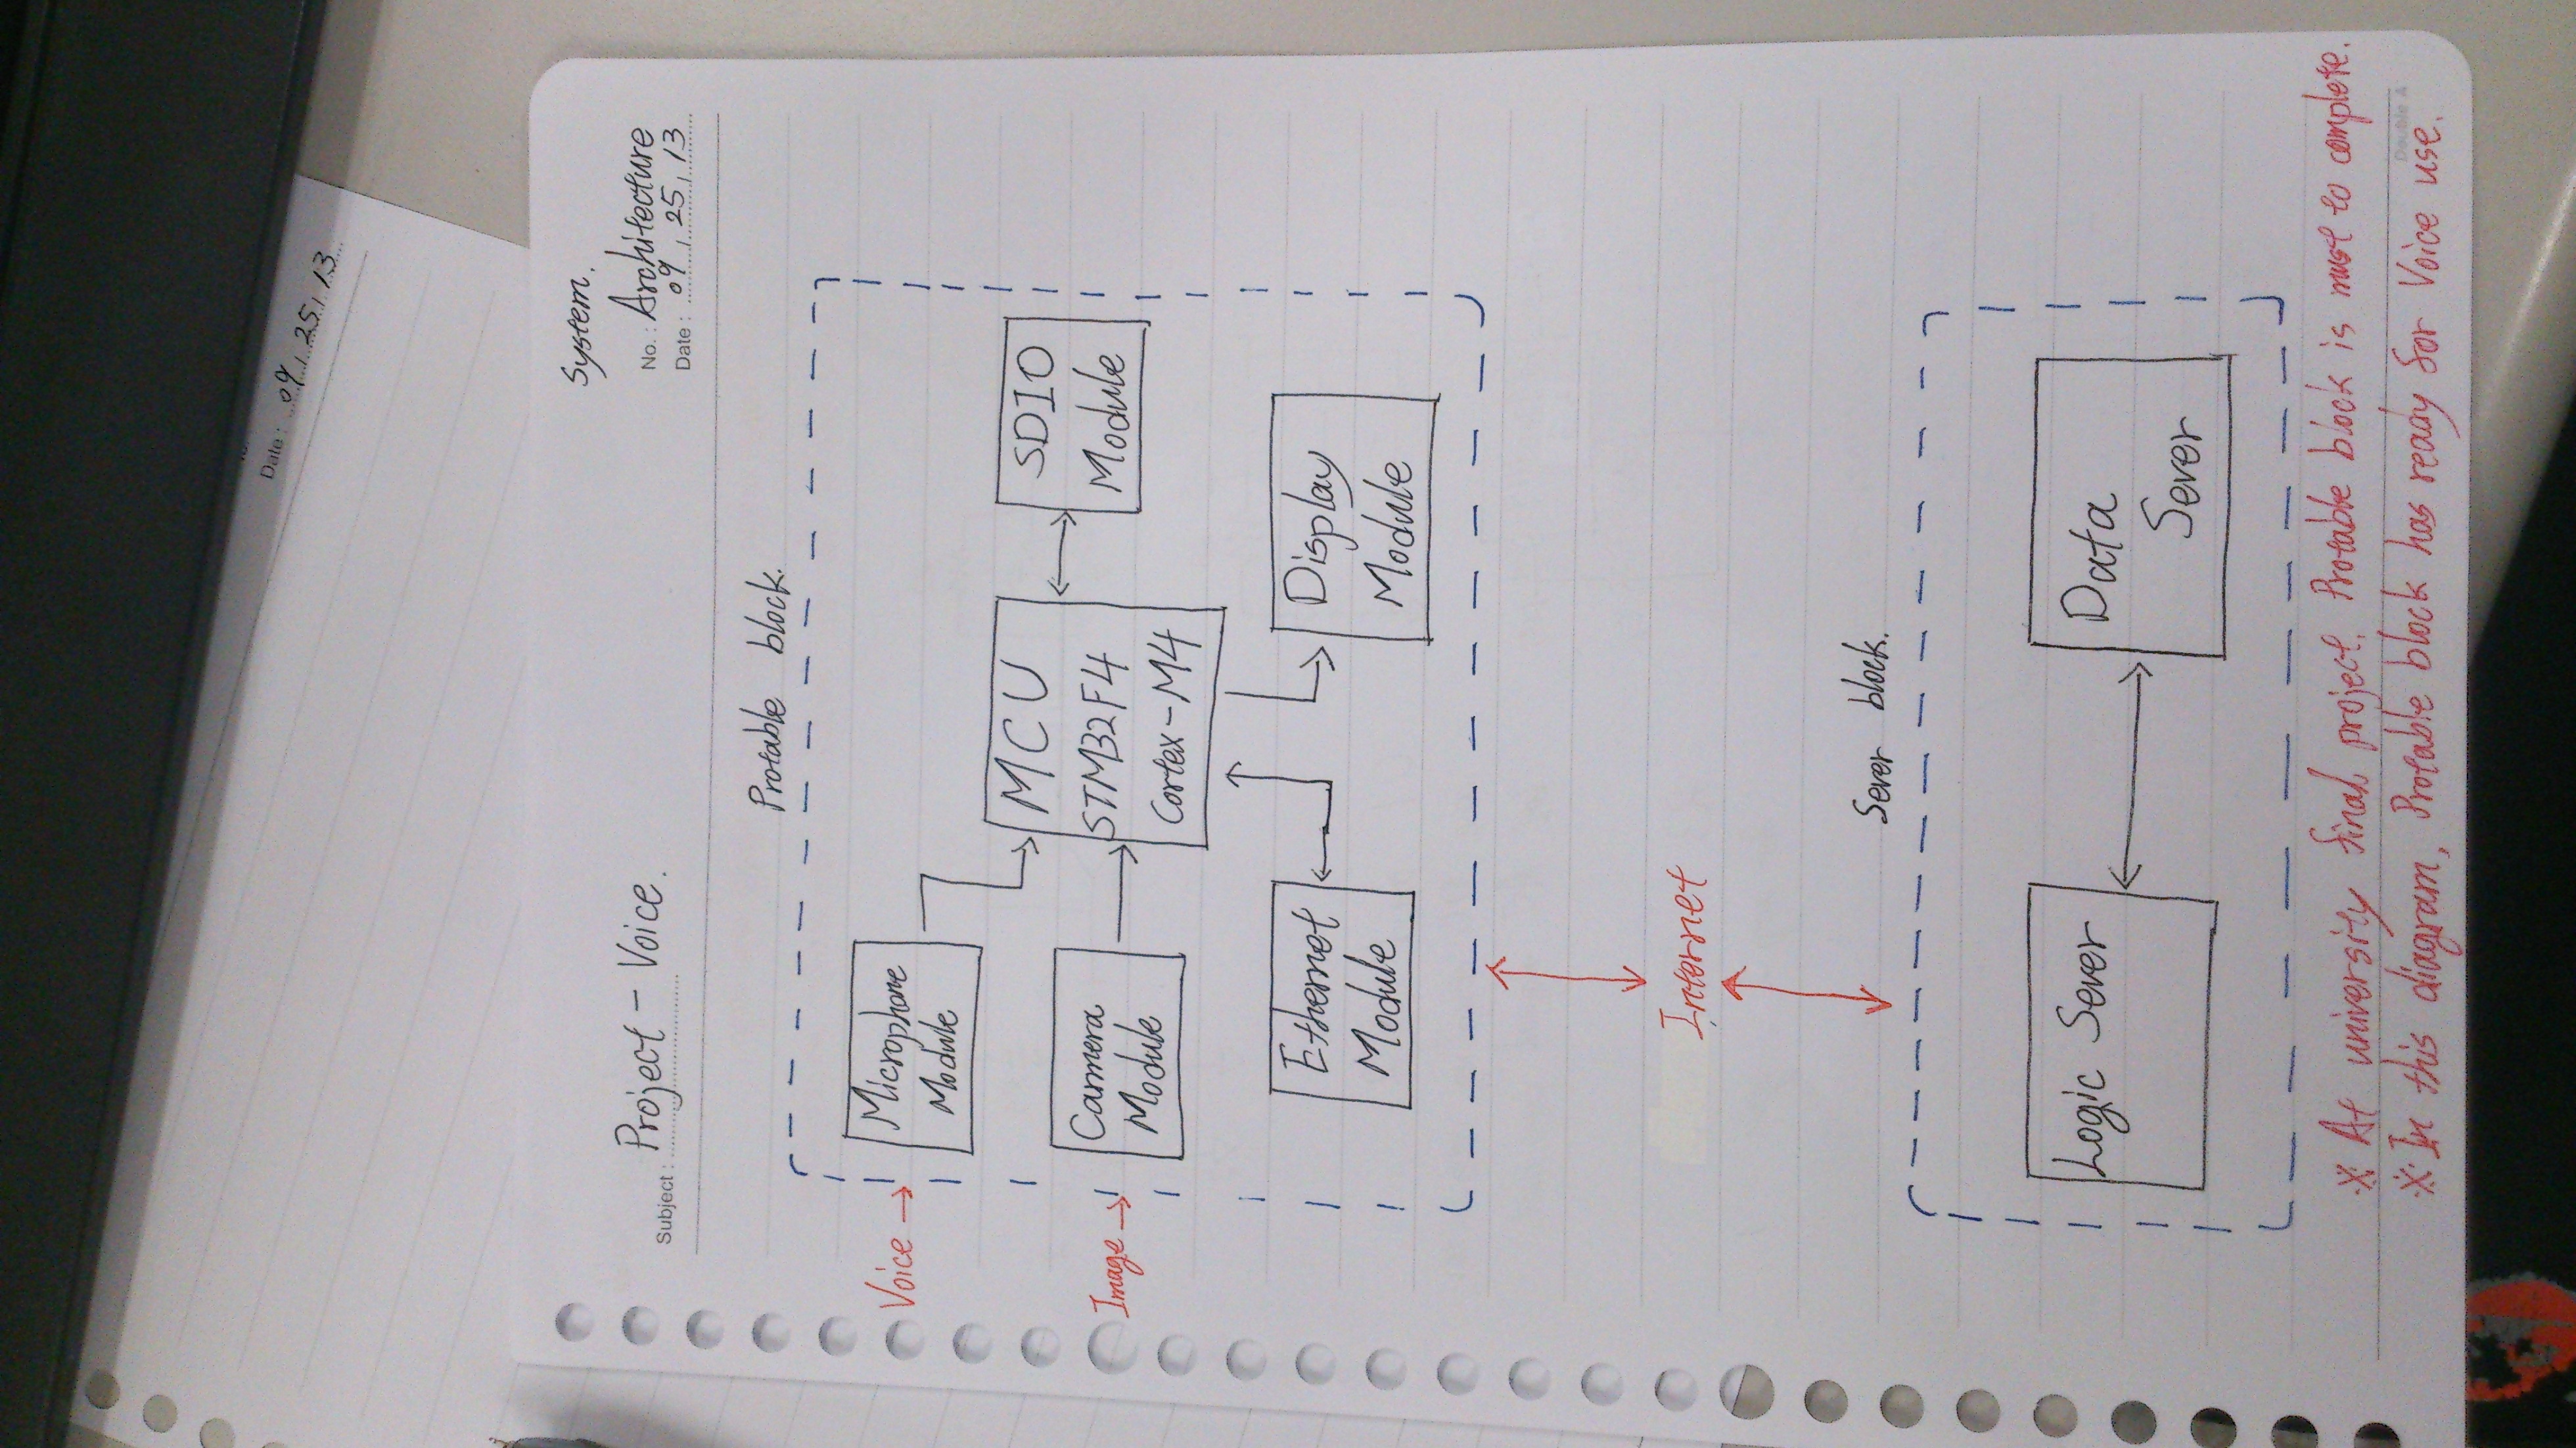 Date : 09, 25, 13
System.
Subject : Project - Voice.
No. : Architecture
Date : 09, 25, 13
Protable block.
Voice →
Microphone
Module
Image →
Carmera
Module
MCU
STM32F4
Cortex-M4
SDIO
Module
Ethernet
Module
Display
Module
Internet
Sever block.
Logic Sever
Data
Sever
※ At university final project, Protable block is must to complete.
Double A
※ In this diagram, Protable block has ready for Voice use.